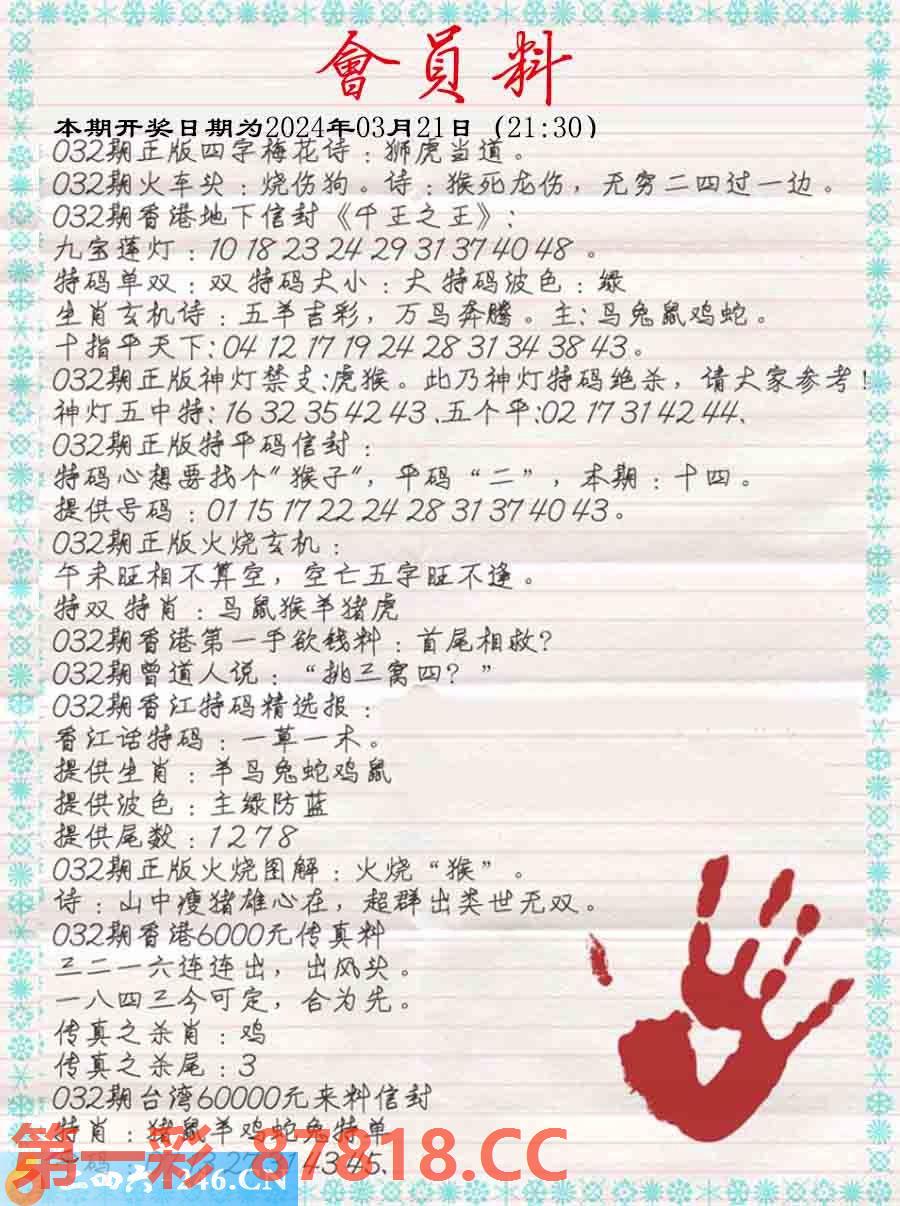 會員料
本期开奖日期为2024年03月21日（21:30）
032期正版四字梅花诗：狮虎当道。
032期火车头：烧伤狗。诗：猴死龙伤，无穷二四过一边。
032期香港地下信封《千王之王》：
九宝莲灯：10 18 23 24 29 31 37 40 48 。
特码单双：双 特码大小：大 特码波色：绿
生肖玄机诗：五羊吉彩，万马奔腾。主：马兔鼠鸡蛇。
十指平天下：04 12 17 19 24 28 31 34 38 43。
032期正版神灯禁支：虎猴。此乃神灯特码绝杀，请大家参考！
神灯五中特：16 32 35 42 43 .五个平:02 17 31 42 44.
032期正版特平码信封：
特码心想要找个"猴子"，平码“二”，本期：十四。
提供号码：01 15 17 22 24 28 31 37 40 43。
032期正版火烧玄机：
午未旺相不算空，空亡五字旺不逢。
特双 特肖：马鼠猴羊猪虎
032期香港第一手欲钱料：首尾相救？
032期曾道人说：“挑三窝四？”
032期香江特码精选报：
香江话特码：一草一木。
提供生肖：羊马兔蛇鸡鼠
提供波色：主绿防蓝
提供尾数：1 2 7 8
032期正版火烧图解：火烧“猴”。
诗：山中瘦猪雄心在，超群出类世无双。
032期香港6000元传真料
三二一六连连出，出风头。
一八四三今可定，合为先。
传真之杀肖：鸡
传真之杀尾：3
032期台湾60000元来料信封
特肖：猪鼠羊鸡蛇兔特单
27 31 43 45.
第一彩 87818.CC
二四六 246.CN